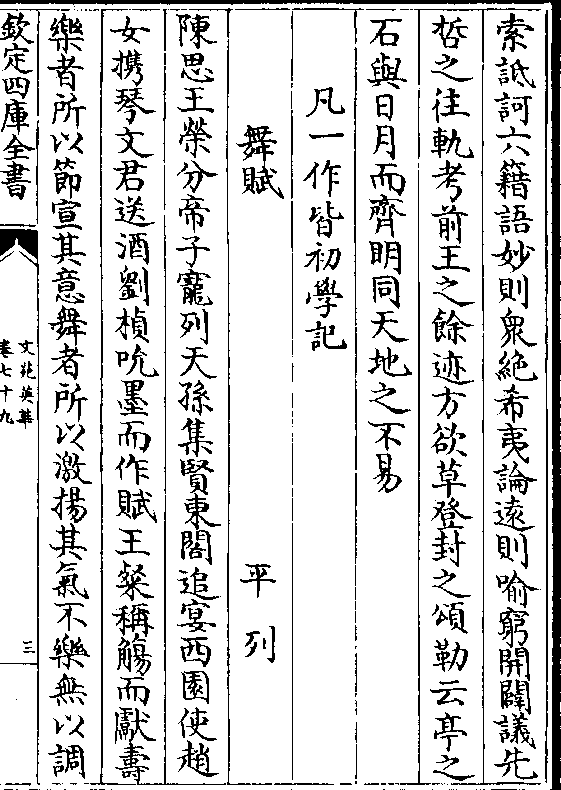 索詆訶六籍語妙則衆絶希夷論遠則喻窮開闢議先
哲之往軌考前王之餘迹方欲草登封之頌勒云亭之
石與日月而齊明同天地之不易
凡一作皆初學記
舞賦 平列
陳思王榮分帝子寵列天孫集賢東閣追宴西園使趙
女携琴文君送酒劉楨吮墨而作賦王粲稱觴而獻壽
樂者所以節宣其意舞者所以激揚其氣不樂無以調
欽定四庫全書
文苑英華
卷七十九
三